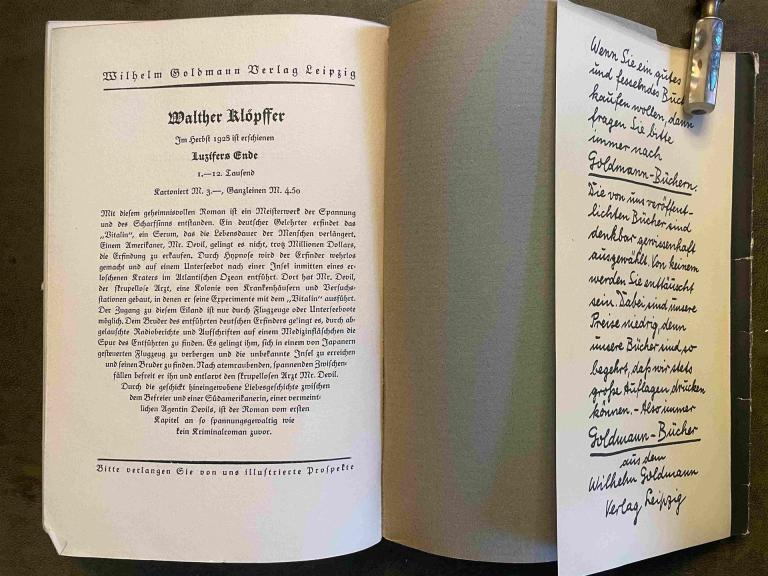 Wilhelm Goldmann Verlag Leipzig
Walther Klöpffer
Im Herbst 1928 ist erschienen
Luzifers Ende
1.—12. Tausend
Kartoniert M. 3.—, Ganzleinen M. 4.50
Mit diesem geheimnisvollen Roman ist ein Meisterwerk der Spannung
und des Scharfsinns entstanden. Ein deutscher Gelehrter erfindet das
„Vitalin“, ein Serum, das die Lebensdauer der Menschen verlängert.
Einem Amerikaner, Mr. Devil, gelingt es nicht, trotz Millionen Dollars,
die Erfindung zu erkaufen. Durch Hypnose wird der Erfinder wehrlos
gemacht und auf einem Unterseebot nach einer Insel inmitten eines er-
loschenen Kraters im Atlantischen Ozean entführt. Dort hat Mr. Devil,
der skrupellose Arzt, eine Kolonie von Krankenhäusern und Versuchs-
stationen gebaut, in denen er seine Experimente mit dem „Vitalin“ ausführt.
Der Zugang zu diesem Eiland ist nur durch Flugzeuge oder Unterseeboote
möglich. Dem Bruder des entführten deutschen Erfinders gelingt es, durch ab-
gelauschte Radioberichte und Aufschriften auf einem Medizinfläschchen die
Spur des Entführten zu finden. Es gelingt ihm, sich in einem von Japanern
gesteuerten Flugzeug zu verbergen und die unbekannte Insel zu erreichen
und seinen Bruder zu finden. Nach atemraubenden, spannenden Zwischen-
fällen befreit er ihn und entlarvt den skrupellosen Arzt Mr. Devil.
Durch die geschickt hineingewobene Liebesgeschichte zwischen
dem Befreier und einer Südamerikanerin, einer vermeint-
lichen Agentin Devils, ist der Roman vom ersten
Kapitel an so spannungsgewaltig wie
kein Kriminalroman zuvor.
Bitte verlangen Sie von uns illustrierte Prospekte
Wenn Sie ein gutes
und fesselndes Buch
kaufen wollen, dann
fragen Sie bitte
immer nach
Goldmann-Büchern.
Die von uns veröffent-
lichten Bücher sind
denkbar gewissenhaft
ausgewählt. Von keinem
werden Sie enttäuscht
sein. Dabei sind unsere
Preise niedrig, denn
unsere Bücher sind so
begehrt, daß wir stets
große Auflagen drucken
können. – Also immer
Goldmann-Bücher
aus dem
Wilhelm Goldmann
Verlag Leipzig